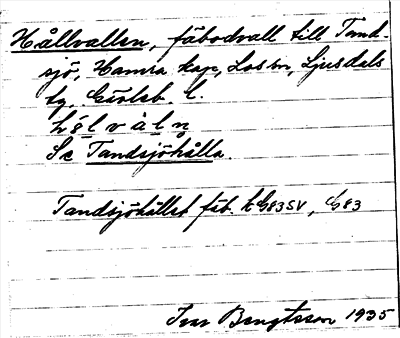 Hållvallen, fäbodvall till Tand-
sjö, Hamra kap, Los sn, Ljusdals
tg, Gävleb. l.
hålvàln
Se Tandsjöhålla.
Tandsjöhållet fäb. tG83SV, G83
Ivar Bengtsson 1935